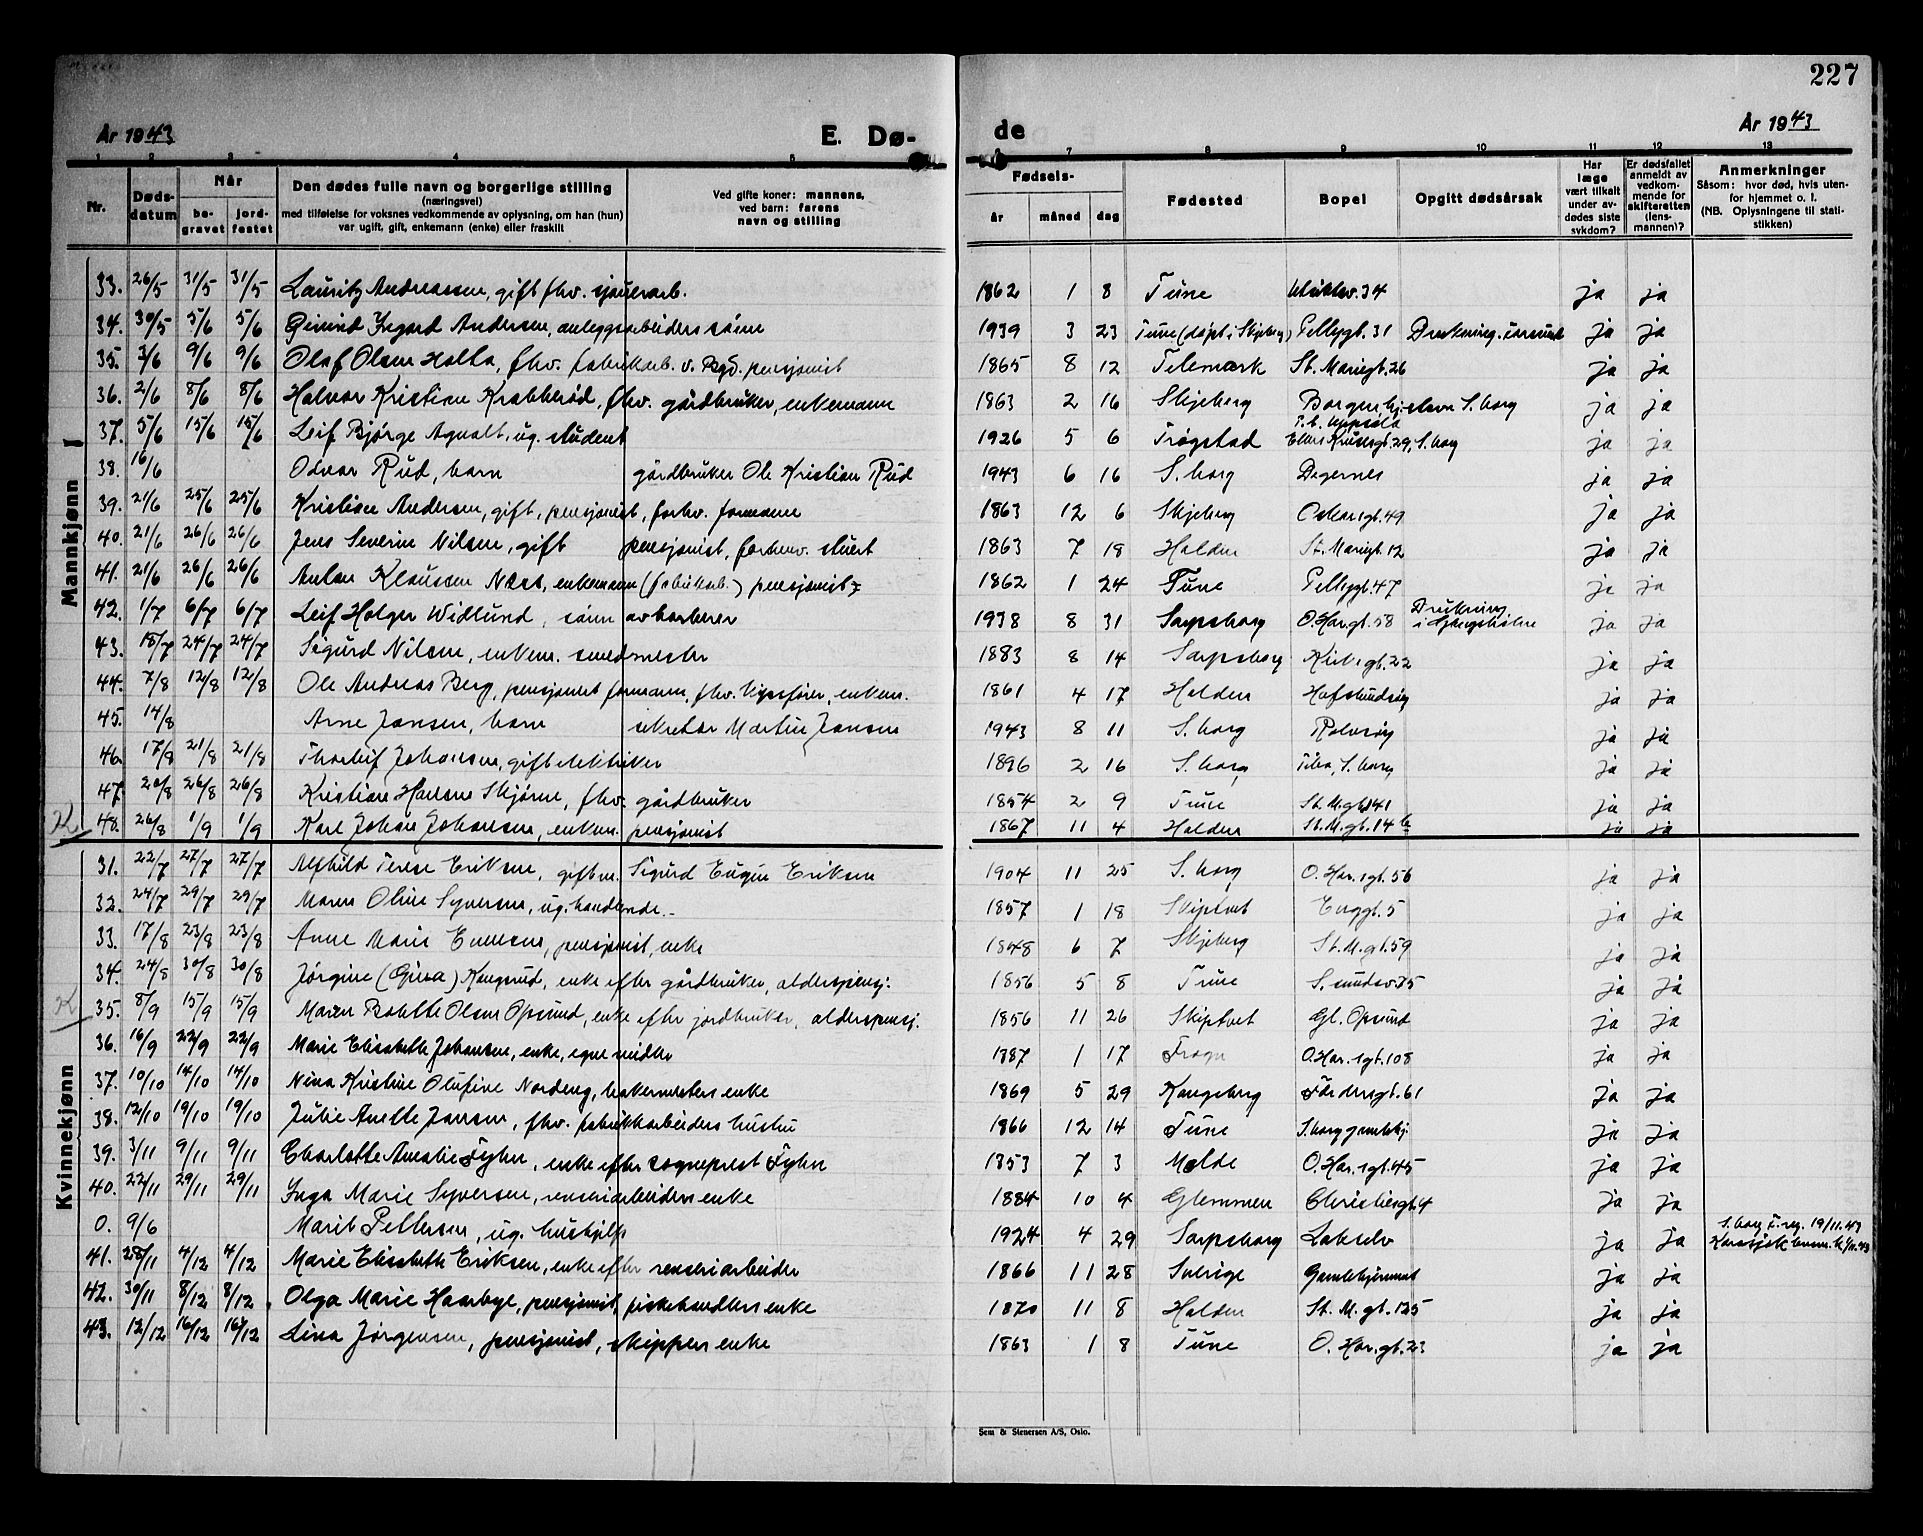 227
År 1943 E. Dø- de År 1943
1 2 3 4 5 7 8 9 10 11 12 13
Nr. Døds-datum Når be-gravet jord-festet Den dødes fulle navn og borgerlige stilling (næringsvei) med tilføielse for voksnes vedkommende av oplysning, om han (hun) var ugift, gift, enkemann (enke) eller fraskilt Ved gifte koner: mannens, ved barn: farens navn og stilling Fødsels- år måned dag Fødested Bopel Opgitt dødsårsak Har læge vært tilkalt under av-dødes siste sykdom? Er dødsfallet anmeldt av vedkom-mende for skifteretten (lens-mannen)? Anmerkninger Såsom: hvor død, hvis uten-for hjemmet o. l. (NB. Oplysningene til stati-stikken)
Mannkjønn
33. 26/5 31/5 31/5 Lauritz Andreassen, gift fhv. sjauerarb. 1862 1 8 Tune 34 ja ja
34. 30/5 5/6 5/6 Andersen, anleggsarbeiders sønn 1939 3 23 Tune (døpt i Skjeberg) Pellygt. 31 Drukning. ja ja
35. 3/6 9/6 9/6 Olaf Olsen Holta, fhv. fabrikarb. v. Bgd. pensjonist 1865 8 12 Telemark St. Mariegt. 26 ja ja
36. 2/6 8/6 8/6 Halvor Kristian Krabberød, fhv. gårdbruker, enkemann 1863 2 16 Skjeberg S. borg ja ja
37. 5/6 15/6 15/6 Leif Bjørge Agnalt, ug. student 1926 5 6 Trøgstad 29, S. borg ja ja
38. 16/6 Odvar Rud, barn gårdbruker Ole Kristian Rud 1943 6 16 S. borg Degernes ja ja
39. 21/6 25/6 25/6 Kristian Andersen, gift, pensjonist, forhv. formann 1863 12 6 Skjeberg Oskarsgt. 49 ja ja
40. 21/6 26/6 26/6 Jens Severin Nilsen, gift pensjonist, forhenv. stuert 1863 7 18 Halden St. Mariegt. 12 ja ja
41. 21/6 26/6 26/6 Anton Klausen Næst, enkemann (fabrikarb.) pensjonist 1862 1 24 Tune Pellygt. 47 ja ja
42. 1/7 6/7 6/7 Leif Holger Widlund, sønn av barberer 1938 8 31 Sarpsborg O. Har. gt. 58 Drukning i ja ja
43. 18/7 24/7 24/7 Sigurd Nilsen, enkem. smedmester 1883 8 14 Sarpsborg Kirkegt. 22 ja ja
44. 7/8 12/8 12/8 Ole Andreas Berg, pensjonist formann, fhv. enkem. 1861 4 17 Halden Hafslundsøy ja ja
45. 14/8 Arne Jansen, barn sekretær Martin Jansen 1943 8 11 S. borg Rolvsøy ja ja
46. 17/8 21/8 21/8 Thorleif Johansen, gift elektriker 1896 2 16 S. borg S. borg ja ja
47. 20/8 26/8 26/8 Kristian Hansen Skjøren, fhv. gårdbruker 1854 2 9 Tune St. M. gt. 141 ja ja
K. 48. 26/8 1/9 1/9 Karl Johan Johansen, enkem. pensjonist 1867 11 4 Halden St. M. gt. 14 b ja ja
Kvinnekjønn
31. 22/7 27/7 27/7 Alfhild Terese Eriksen, gift m. Sigurd Eugen Eriksen 1904 11 25 S. borg O. Har. sgt. 56 ja ja
32. 24/7 29/7 29/7 Maren Oline Syversen, ug. handlende 1857 1 18 Skiptvet Enggt. 5 ja ja
33. 17/8 23/8 23/8 Anne Marie Evensen, pensjonist, enke 1848 6 7 Skjeberg St. M. gt. 59 ja ja
34. 24/8 30/8 30/8 Jørgine (Gina) Kongsrud, enke efter gårdbruker, alderspensj. 1856 5 8 Tune ja ja
K. 35. 8/9 15/9 15/9 Maren Bolette Olsen Opsund, enke efter jordbruker, alderspensj. 1856 11 26 Skiptvet Gl. Opsund ja ja
36. 16/9 22/9 22/9 Marie Elisabeth Johansen, enke, egne midler 1887 1 17 Frogn O. Har. sgt. 108 ja ja
37. 10/10 14/10 14/10 Nina Kristine Olufine Nordeng, bakermesters enke 1869 5 29 Kongsberg 61 ja ja
38. 12/10 19/10 19/10 Julie Anette Jansen, fhv. fabrikkarbeiders hustru 1866 12 14 Tune S. borg gamlehj. ja ja
39. 3/11 9/11 9/11 Charlotte Amalie Fyhn, enke efter sogneprest Fyhn 1853 7 3 Molde O. Har. sgt. 45 ja ja
40. 22/11 29/11 29/11 Inga Marie Syversen, renseriarbeiders enke 1884 10 4 Glemmen Christiesgt. 4 ja ja
0. 9/6 Marit Pettersen, ug. hushjelp 1924 4 29 Sarpsborg Lakselv ja ja S. borg F. reg. 19/11.43 Karasjok
41. 28/11 4/12 4/12 Marie Elisabeth Eriksen, enke efter renseriarbeider 1866 11 28 Sverige Gamlehjemmet ja ja
42. 30/11 8/12 8/12 Olga Marie Haarbye, pensjonist, fiskehandlers enke 1870 11 8 Halden St. M. gt. 125 ja ja
43. 12/12 16/12 16/12 Lina Jørgensen, pensjonist, skippers enke 1863 1 8 Tune O. Har. gt. 23 ja ja
Sem & Stenersen A/S, Oslo.